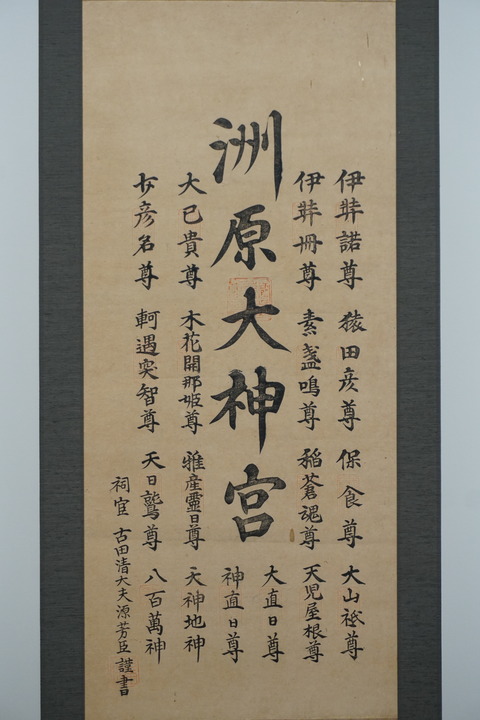 伊弉諾尊 猿田彦尊 保食尊 大山祇尊
伊弉冊尊 素盞鳴尊 稲蒼魂尊 天児屋根尊
洲原大神宮
大直日尊
神直日尊
大已貴尊 木花開那姫尊 雅産靈日尊 天神地神
少彦名尊 軻遇突智尊 天日鷲尊 八百萬神
祠官 古田清大夫源芳臣 謹書